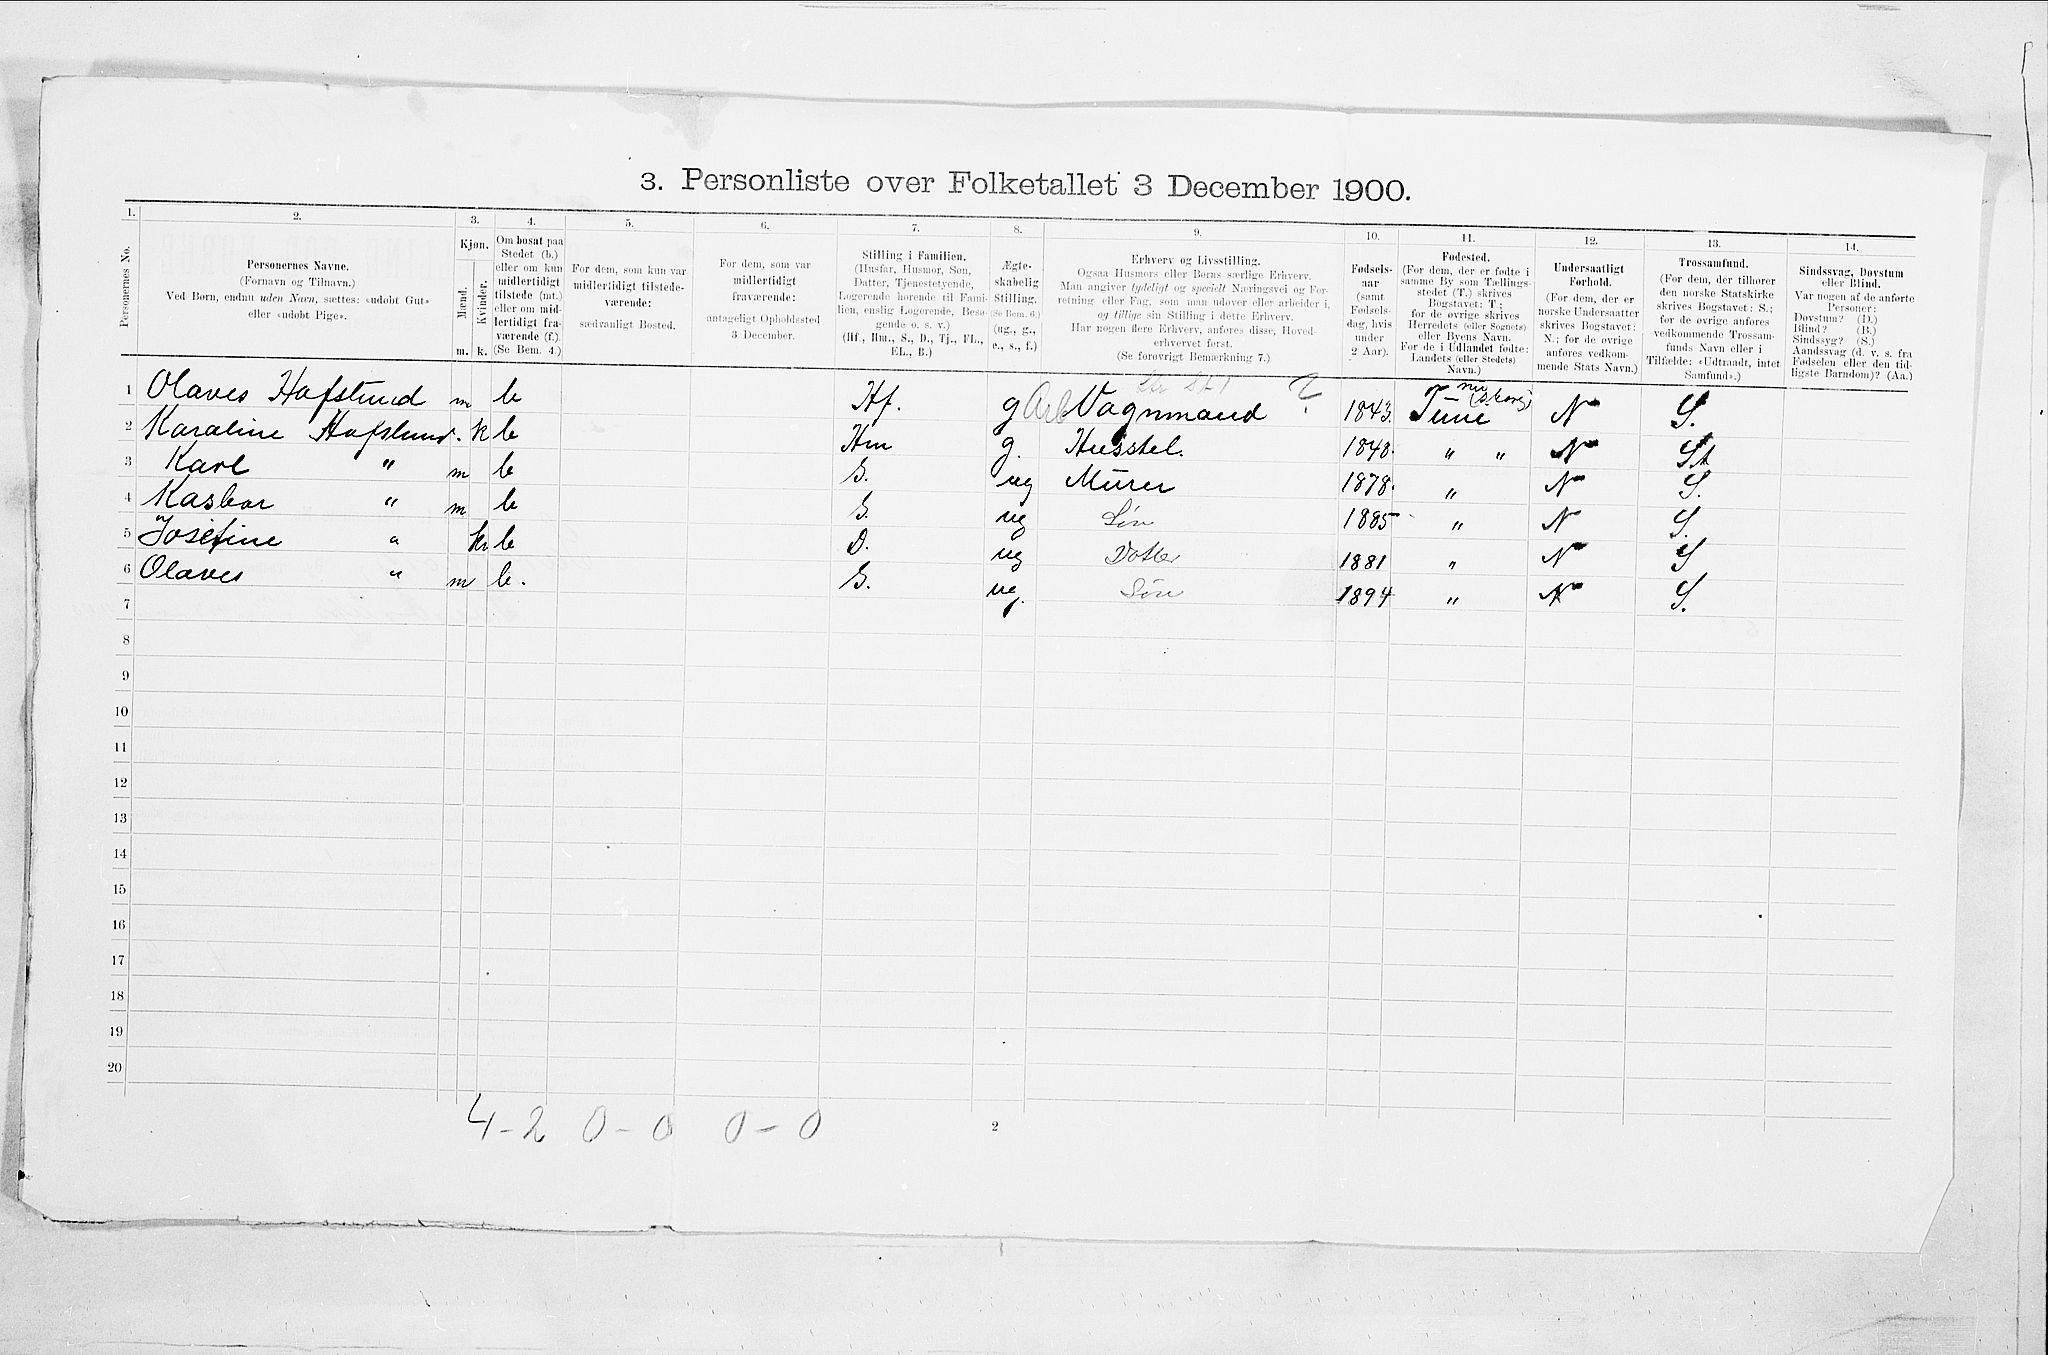 3. Personliste over Folketallet 3 December 1900.
1. 2. 3. 4. 5. 6. 7. 8. 9. 10. 11. 12. 13. 14.
Personernes No.
Personernes Navne.
(Fornavn og Tilnavn.)
Ved Børn, endnu uden Navn, sættes: «udøbt Gut»
eller «udøbt Pige».
Kjøn.
Mænd.
Kvinder.
m. k.
Om bosat paa
Stedet (b.)
eller om kun
midlertidigt
tilstede (mt.)
eller om mid-
lertidigt fra-
værende (f.)
(Se Bem. 4.)
For dem, som kun var
midlertidigt tilstede-
værende:
sædvanligt Bosted.
For dem, som var
midlertidigt
fraværende:
antageligt Opholdssted
3 December.
Stilling i Familien.
(Husfar, Husmor, Søn,
Datter, Tjenestetyende,
Logerende hørende til Fami-
lien, enslig Logerende, Besø-
gende o. s. v.)
(Hf., Hm., S., D., Tj., FL.,
EL., B.)
Ægte-
skabelig
Stilling.
(Se Bem. 6.)
(ug., g.,
e., s., f.)
Erhverv og Livsstilling.
Ogsaa Husmors eller Børns særlige Erhverv.
Man angiver tydeligt og specielt Næringsvei og For-
retning eller Fag, som man udøver eller arbeider i,
og tillige sin Stilling i dette Erhverv.
Har nogen flere Erhverv, anføres disse, Hoved-
erhvervet først.
(Se forøvrigt Bemærkning 7.)
Fødsels-
aar
(samt
Fødsels-
dag, hvis
under
2 Aar).
Fødested.
(For dem, der er fødte i
samme By som Tællings-
stedet (T.) skrives
Bogstavet: T.;
for de øvrige skrives
Herredets (eller Sognets)
eller Byens Navn.
For de i Udlandet fødte:
Landets (eller Stedets)
Navn.)
Undersaatligt
Forhold.
(For dem, der er
norske Undersaatter
skrives Bogstavet:
N.; for de øvrige
anføres vedkom-
mende Stats Navn.)
Trossamfund.
(For dem, der tilhører
den norske Statskirke
skrives Bogstavet: S.;
for de øvrige anføres
vedkommende Trossam-
funds Navn eller i
Tilfælde: «Udtraadt, intet
Samfund».)
Sindssvag, Døvstum
eller Blind.
Var nogen af de anførte
Personer:
Døvstum? (D.)
Blind? (B.)
Sindssyg? (S.)
Aandssvag (d. v. s. fra
Fødselen eller den tid-
ligste Barndom)? (Aa.)
1 Olaves Hafslund m b Hf. g Arb Vognmand ? 1843. Tune N S.
2 Karaline Hafslund. k b Hm g. Husstel. 1848. " " N St
3 Karl " m b S. ug Murer 1878. " N S.
4 Kasbar " m b S. ug Søn 1885 " N S.
5 Josefine " k b D. ug Dotter 1881 " N S
6 Olaves " m b. S. ug. Søn 1894 " N S.
7
8
9
10
11
12
13
14
15
16
17
18
19
20
4-2 0-0 0-0
2